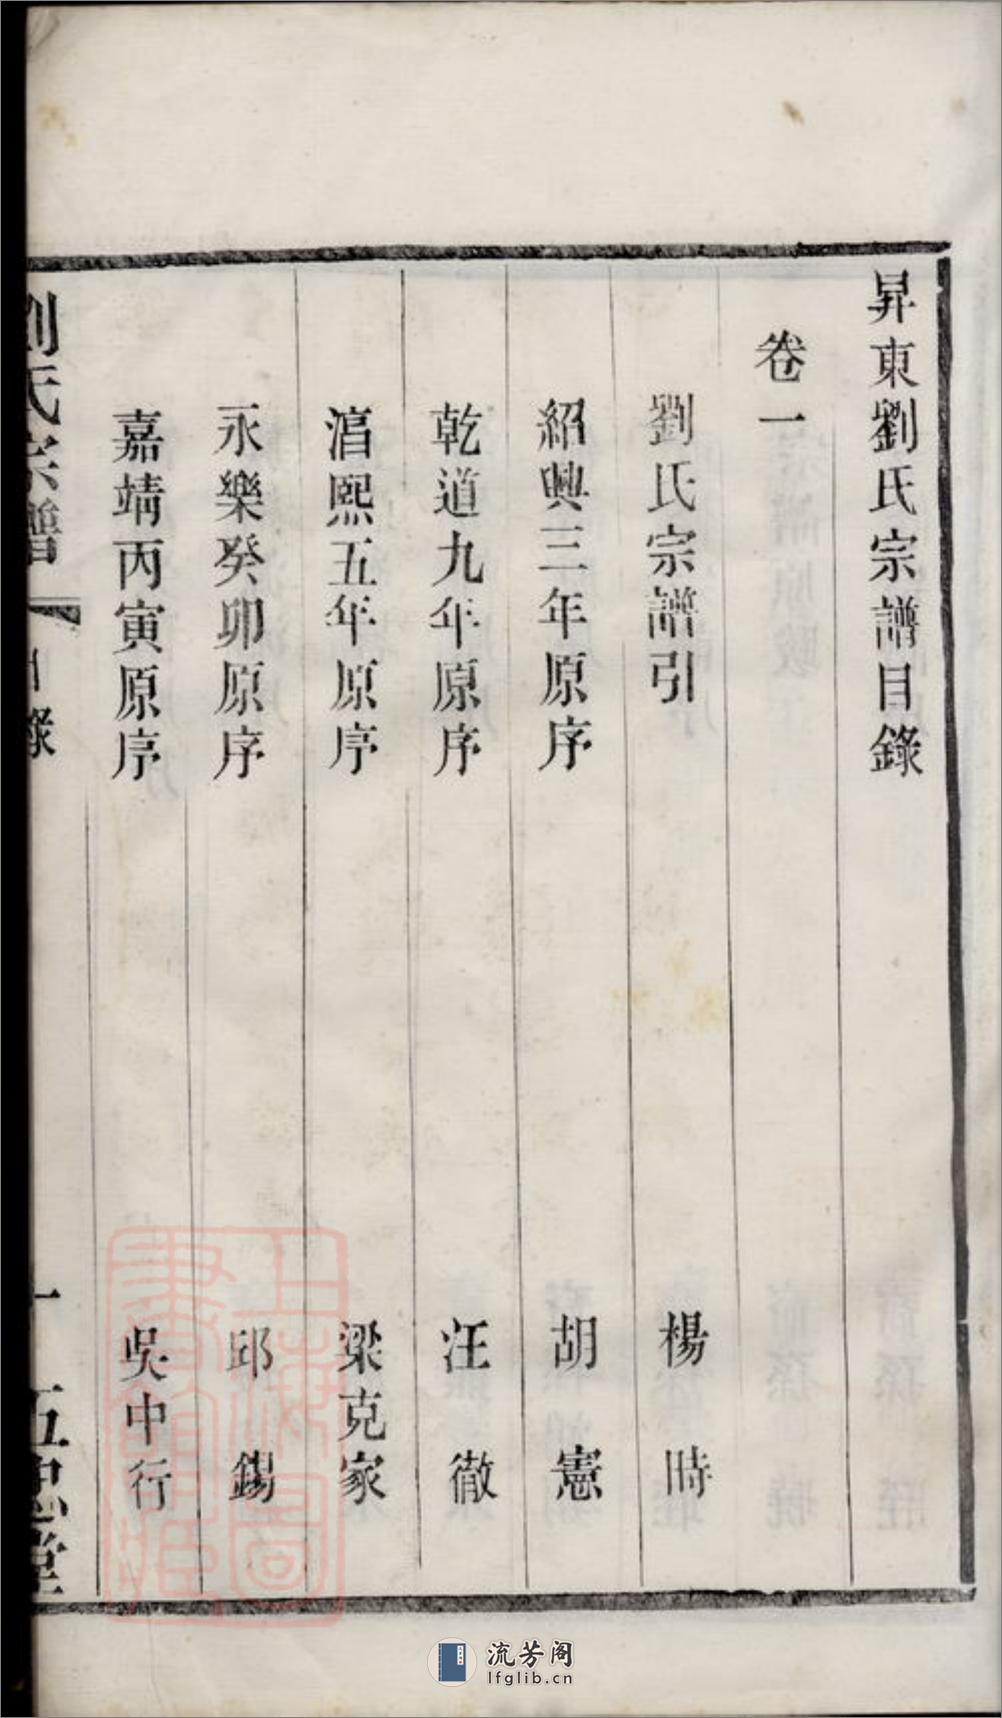 昇東劉氏宗譜目錄
卷一
劉氏宗譜引 楊時
紹興三年原序 胡憲
乾道九年原序 汪徹
湻熙五年原序 梁克家
永樂癸卯原序 邱錫
嘉靖丙寅原序 吳中行
劉氏宗譜 目錄 一 五忠堂
上海圖書館藏
流芳阁
lfglib.cn